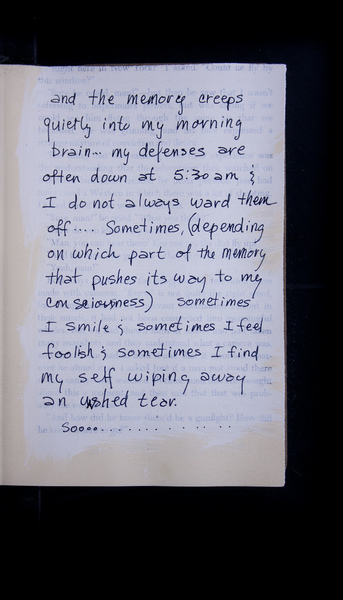 and the memory creeps
quietly into my morning
brain... my defenses are
often down at 5:30 am &
I do not always ward them
off.... Sometimes, (depending
on which part of the memory
that pushes its way to my
consciousness) sometimes
I smile & sometimes I feel
foolish & sometimes I find
my self wiping away
an unshed tear.
Soooo..............